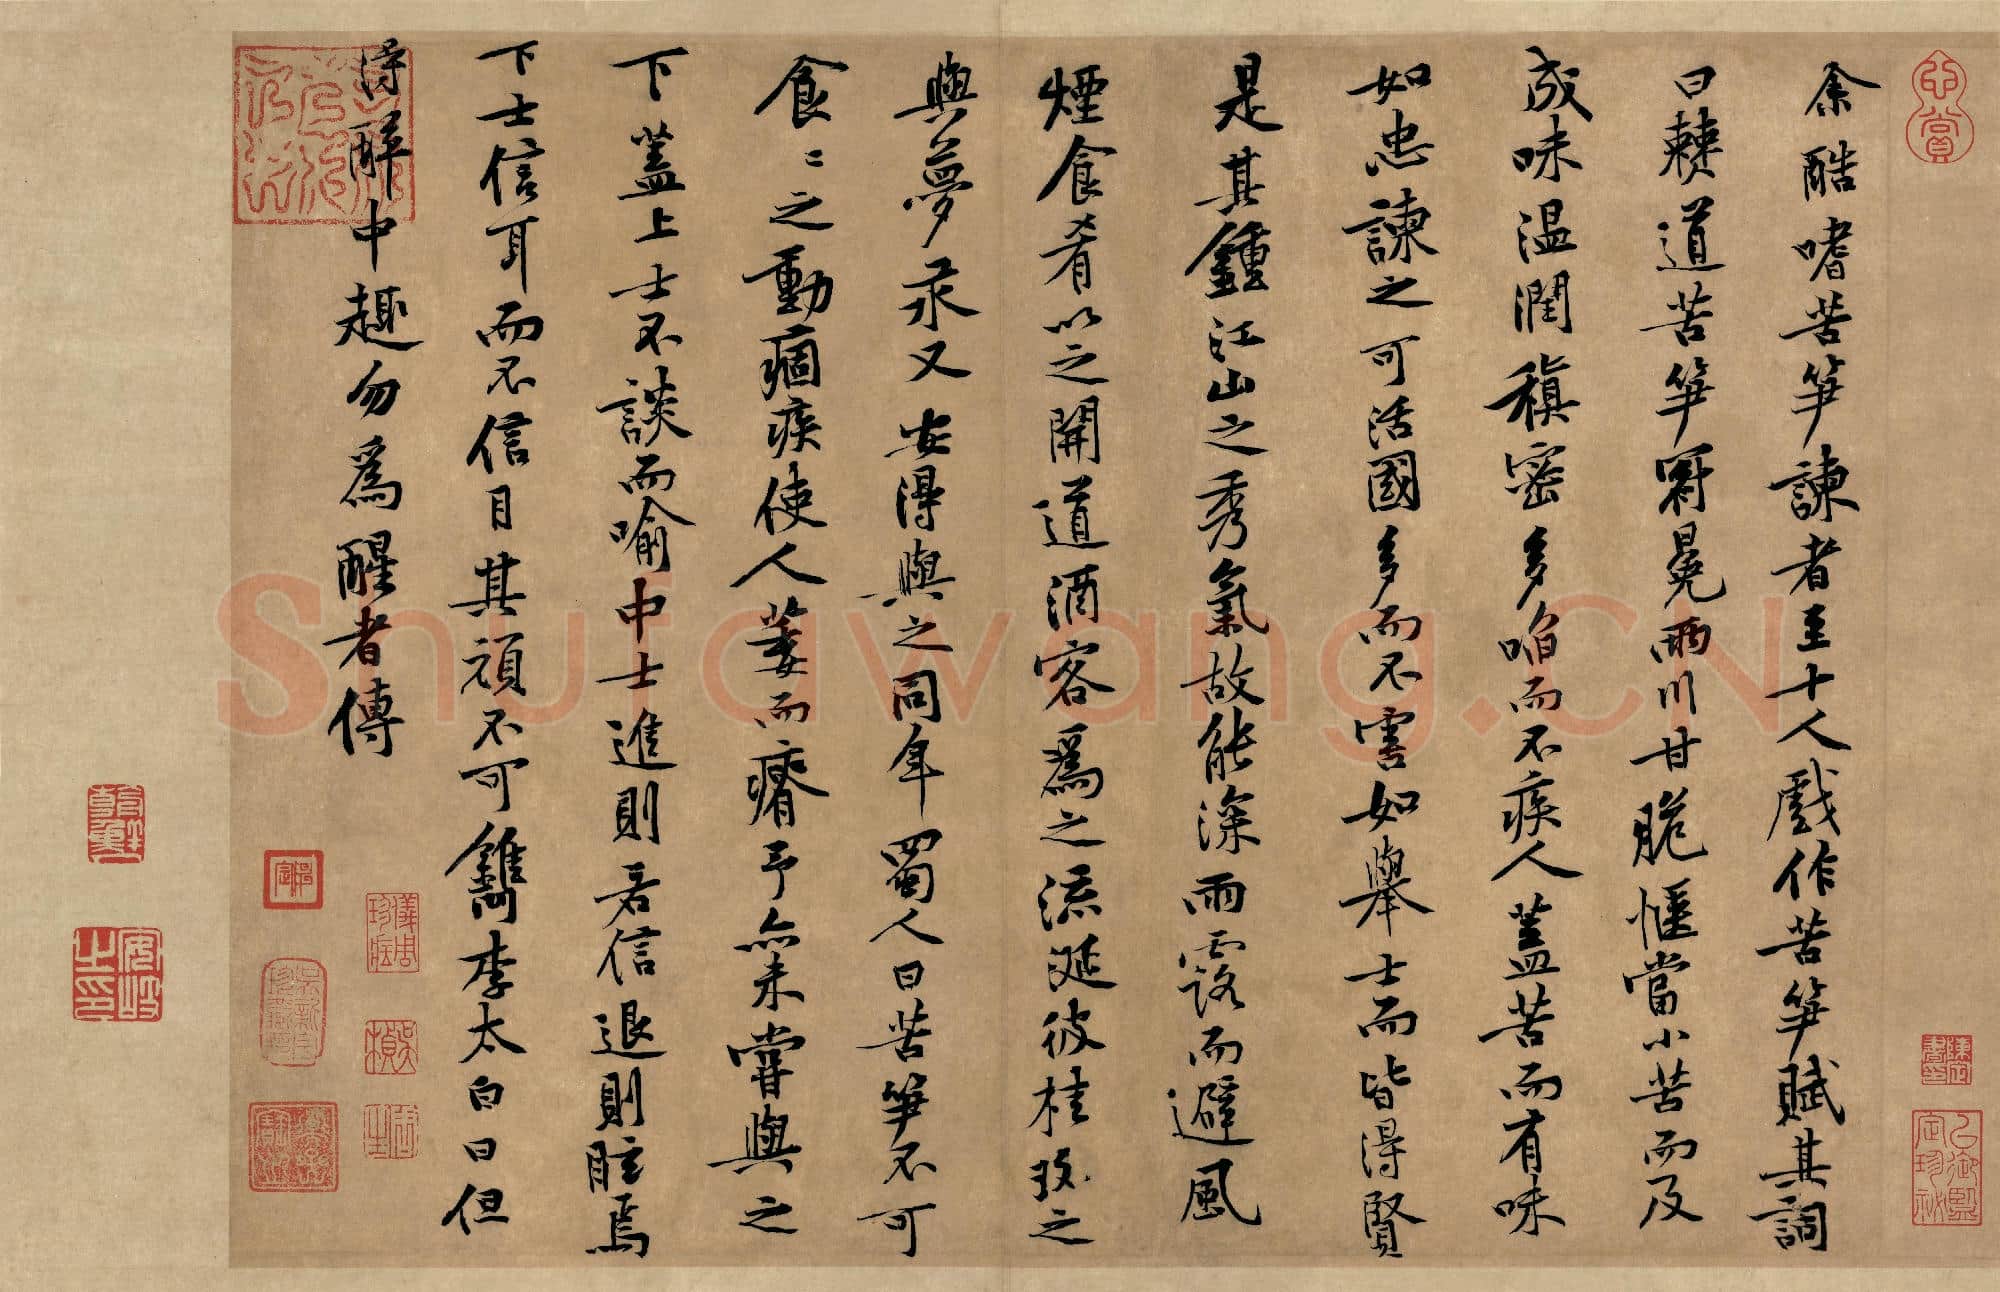 余酷嗜苦笋諫者至十人戲作苦笋賦其詞
曰僰道苦笋冠冕兩川甘脆愜當小苦而及
成味温潤稹密多啗而不疾人蓋苦而有味
如忠諫之可活國多而不害如舉士而皆得賢
是其鍾江山之秀氣故能深雨露而避風
煙食肴以之開道酒客爲之流涎彼桂玫之
與夢永又安得與之同年蜀人曰苦笋不可
食〻之動痼疾使人萎而瘠予亦未嘗與之
下蓋上士不談而喻中士進則若信退則眩焉
下士信耳而不信目其頑不可鐫李太白曰但
得醉中趣勿爲醒者傳
Shufawang.CN